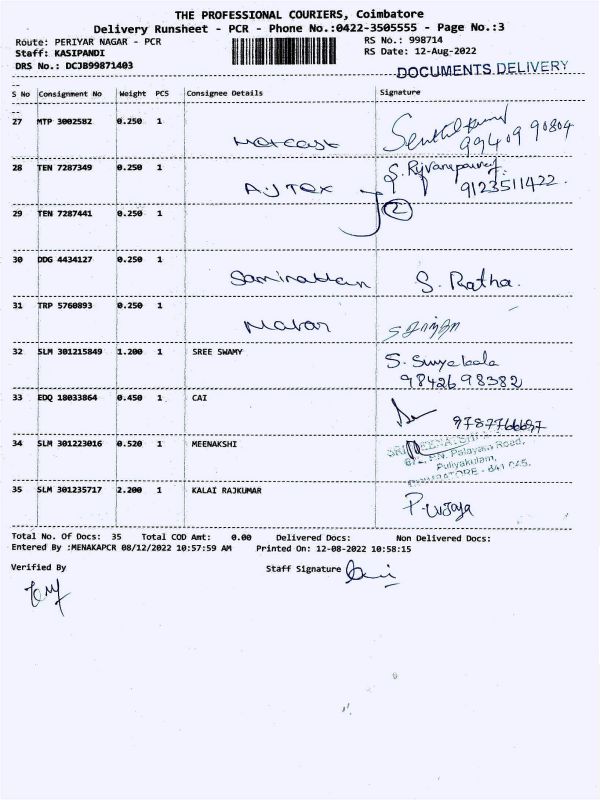 THE PROFESSIONAL COURIERS, Coimbatore
Delivery Runsheet - PCR - Phone No.:0422-3505555 - Page No.:3
Route: PERIYAR NAGAR - PCR
RS No.: 998714
Staff: KASIPANDI
RS Date: 12-Aug-2022
DRS No.: DCJB99871403
DOCUMENTS DELIVERY
S No Consignment No Weight PCS Consignee Details Signature
27 MTP 3002582 0.250 1
99409 90804
28 TEN 7287349 0.250 1
AJ TEX
9123511422.
2
29 TEN 7287441 0.250 1
30 DDG 4434127 0.250 1
S. Ratha.
31 TRP 5760893 0.250 1
32 SLM 301215849 1.200 1 SREE SWAMY
98426 98382
33 EDQ 18033864 0.450 1 CAI
34 SLM 301223016 0.520 1 MEENAKSHI
Palayam Road,
Puliyakulam,
35 SLM 301235717 2.200 1 KALAI RAJKUMAR
Total No. Of Docs: 35 Total COD Amt: 0.00 Delivered Docs: Non Delivered Docs:
Entered By :MENAKAPCR 08/12/2022 10:57:59 AM Printed On: 12-08-2022 10:58:15
Verified By
Staff Signature